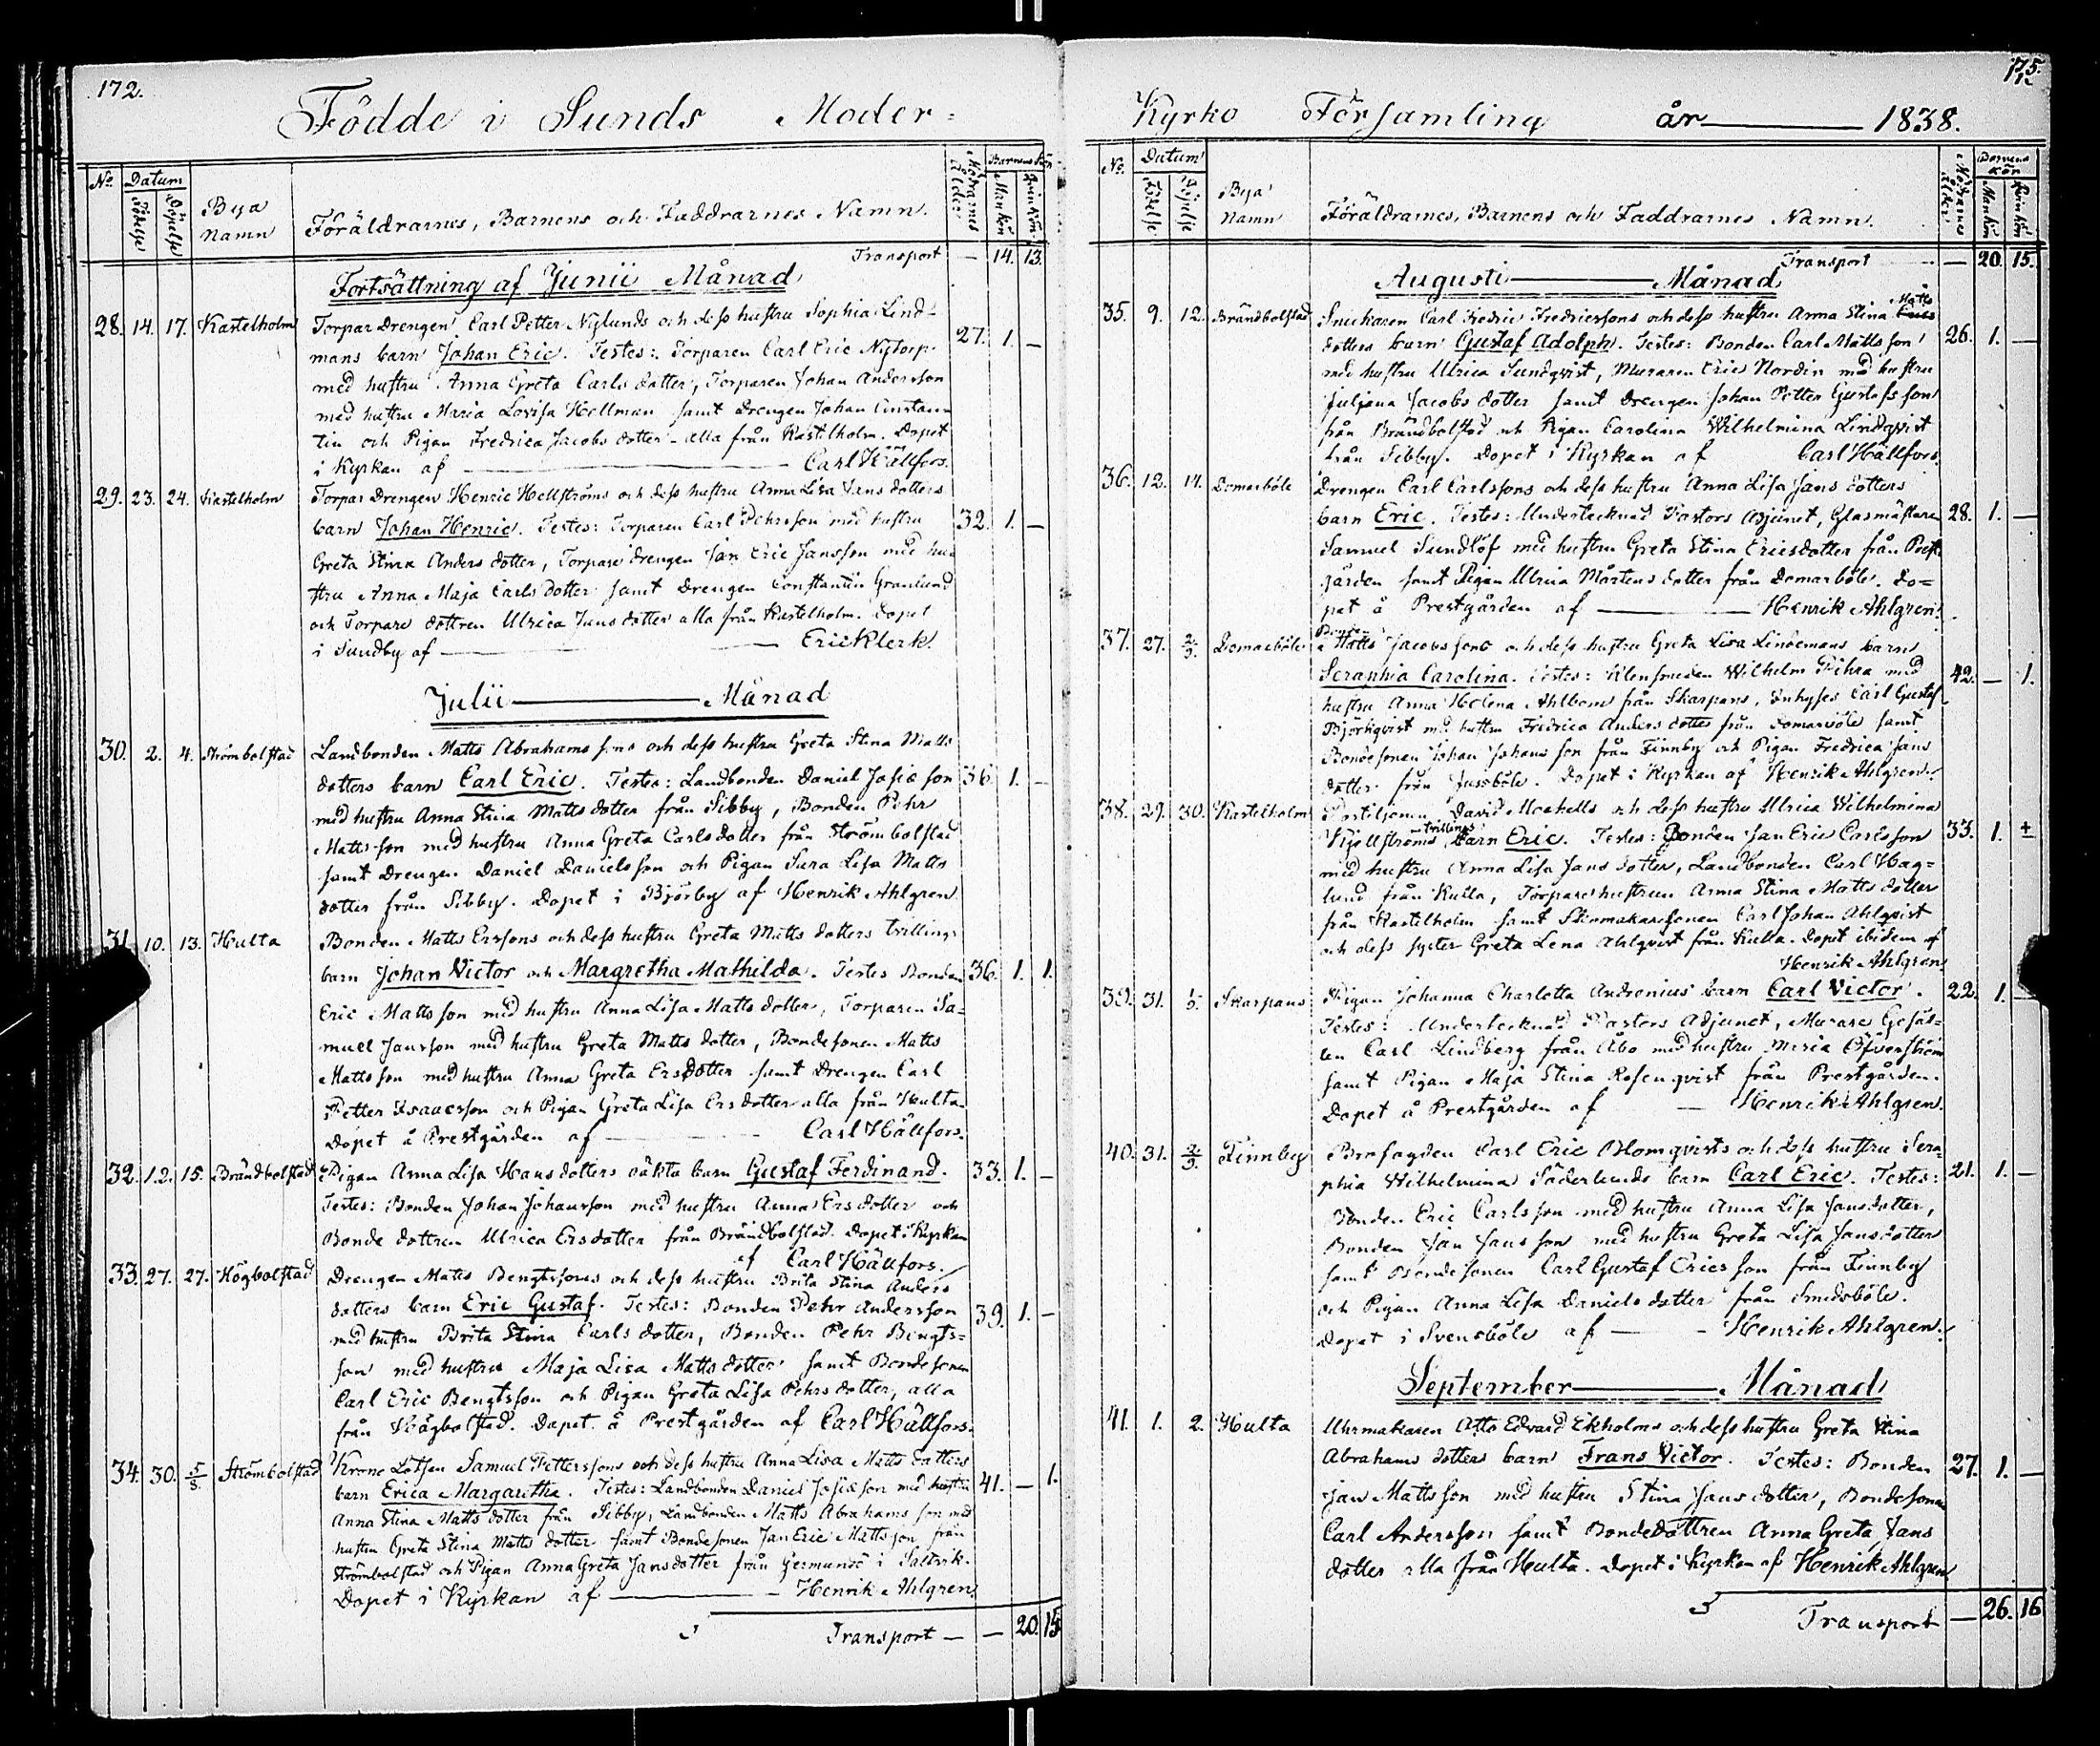 172.
Födde i Sunds Moder=
No
Datum
Födelse
Döpelse
Bya
Namn
Föräldrarnes, Barnens och Faddrarnes Namn.
Mödrarnes
Ålder
Barnens Kön
Mankön
Qvinkön
Transport — 14. 13.
Fortsättning af Junii Månad
28. 14. 17. Kastelholm Torpar Drengen Carl Petter Nylunds och dess hustru Sophia Lind=
mans barn Johan Eric. Testes: Torparen Carl Eric Nytorp 27. 1. —
med hustru Anna Greta Carls dotter, Torparen Johan Andersson
med hustru Maria Lovisa Hellman samt Drengen Johan Constan
tin och Pigan Fredrica Jacobs dotter - alla från Kastelholm. Döpet
i Kyrkan af — Carl Hällfors.
29. 23. 24. Kastelholm Torpar Drengen Henric Hellströms och dess hustru Anna Lisa Jans dotters
barn Johan Henric. Testes: Torparen Carl Pehrsson med hustru 32. 1. —
Greta Stina Anders dotter, Torpare drengen Jan Eric Jansson med hu
stru Anna Maja Carls dotter samt Drengen Constantin Granlund
och Torpare dottren Ulrica Jans dotter alla från Kastelholm. Döpet
i Sundby af — Eric Klerk.
Julii — Månad
30. 2. 4. Strömbolstad Landbonden Matts Abrahams sons och dess hustru Greta Stina Matts
dotters barn Carl Eric. Testes: Landbonden Daniel Josias son 36. 1. —
med hustru Anna Stina Matts dotter från Sibby, Bonden Pehr
Matts son med hustru Anna Greta Carls dotter från Strömbolstad
samt Drengen Daniel Danielsson och Pigan Sara Lisa Matts
dotter från Sibby. Döpet i Björby af Henrik Ahlgren
31. 10. 13. Hulta Bonden Matts Erssons och dess hustru Greta Matts dotters tvillings
barn Johan Victor och Margretha Mathilda. Testes Bonden 36. 1. 1.
Eric Matts son med hustru Anna Lisa Matts dotter, Torparen Sa=
muel Jansson med hustru Greta Matts dotter, Bondesonen Matts
Matts son med hustru Anna Greta Ersdotter samt Drengen Carl
Petter Isaacsson och Pigan Greta Lisa Ers dotter alla från Hulta
Döpet å Prestgården af — Carl Hällfors.
32. 12. 15. Brändbolstad Pigan Anna Lisa Hans dotters oäkta barn Gustaf Ferdinand. 33. 1. —
Testes: Bonden Johan Johansson med hustru Anna Ers dotter och
Bonde dottren Ulrica Ersdotter från Brändbolstad. Döpet i Kyrkan
af Carl Hällfors.
33. 27. 27. Högbolstad Drengen Matts Bengtssons och dess hustru Brita Stina Anders
dotters barn Eric Gustaf. Testes: Bonden Pehr Andersson 39. 1. —
med hustru Brita Stina Carls dotter, Bonden Pehr Bengts=
son med hustru Maja Lisa Matts dotter samt Bondesonen
Carl Eric Bengtsson och Pigan Greta Lisa Pehrs dotter, alla
från Högbolstad. Döpet å Prestgården af Carl Hällfors.
34. 30. 5/8 Strömbolstad Krono Lotsen Samuel Petterssons och dess hustru Anna Lisa Matts dotters
barn Erica Margaretha. Testes: Landbonden Daniel Josias son med hustru 41. — 1.
Anna Stina Matts dotter från Sibby, Landbonden Matts Abrahams son med
hustru Greta Stina Matts dotter samt Bonde sonen Jan Eric Mattsson från
Strömbolstad och Pigan Anna Greta Jansdotter från Germundö i Saltvik.
Döpet i Kyrkan af — Henrik Ahlgren.
Transport — — 20. 15
175.
Kyrko Församling år — 1838.
No.
Datum
Födelse
Döpelse
Bya
Namn
Föräldrarnes, Barnens och Faddrarnes Namn.
Mödrarnes
Ålder
Barnens
Kön
Mankön
Qvinkön
Transport — 20. 15.
Augusti — Månad
35. 9. 12. Brändbolstad Snickaren Carl Fredric Fredricssons och dess hustru Anna Stina Matts
dotters barn Gustaf Adolph. Testes: Bonden Carl Matts son 26. 1. —
med hustru Ulrica Sundqvist, Muraren Eric Nordin med hustru
Juljana Jacobs dotter samt Drengen Johan Petter Gustafsson
från Brändbolstad och Pigan Carolina Wilhelmina Lindqvist
från Sibby. Döpet i Kyrkan af Carl Hällfors.
36. 12. 14. Domarböle Drengen Carl Carlssons och dess hustru Anna Lisa Jans dotters
barn Eric. Testes: Undertecknad Pastors Adjunct, Glasmästaren 28. 1. —
Samuel Sundlöf med hustru Greta Stina Ericsdotter från Prest
gården samt Pigan Ulrica Mårtens dotter från Domarböle. Dö=
pet å Prestgården af — Henrik Ahlgren.
37. 27. 2/9. Domarböle Bonden Matts Jacobssons och dess hustru Greta Lisa Lindemans barn
Seraphia Carolina. Testes: Klensmeden Wilhelm Fihra med 42. — 1.
hustru Anna Helena Ahlbom från Skarpans, Inhyses Carl Gustaf
Björkqvist med hustru Fredrica Anders dotter från Domarböle samt
Bondesonen Johan Johansson från Finnby och Pigan Fredrica Jans
dotter från Jussböle. Döpet i Kyrkan af Henrik Ahlgren.
38. 29. 30. Kastelholm Postiljonen David Mochells och dess hustru Ulrica Wilhelmina
Kjellströms tvillings barn Eric. Testes: Bonden Jan Eric Carlsson 33. 1. +
med hustru Anna Lisa Jans dotter, Landbonden Carl Hag=
lund från Kulla, Torpare hustrun Anna Stina Matts dotter
från Kastelholm samt Skomakaresonen Carl Johan Ahlqvist
och dess syster Greta Lena Ahlqvist från Kulla. Döpt ibidem af
Henrik Ahlgren.
39. 31. 1/9. Skarpans Pigan Johanna Charlotta Andronius barn Carl Victor. 22. 1. —
Testes: Undertecknad Pastors Adjunct, Murare Gesäl=
len Carl Lindberg från Åbo med hustru Maria Öfverström
samt Pigan Maja Stina Rosenqvist från Prestgården.
Döpet å Prestgården af — Henrik Ahlgren.
40. 31. 2/9. Finnby Brofogden Carl Eric Blomqvists och dess hustru Sera=
phia Wilhelmina Söderlunds barn Carl Eric. Testes: 21. 1. —
Bonden Eric Carlsson med hustru Anna Lisa Jansdotter,
Bonden Jan Jansson med hustru Greta Lisa Jansdotter
samt Bondesonen Carl Gustaf Ericsson från Finnby
och Pigan Anna Lisa Daniels dotter från Smedsböle.
Döpet i Svensböle af — Henrik Ahlgren.
September — Månad
41. 1. 2. Hulta Uhrmakaren Otto Edvard Ekholms och dess hustru Greta Stina
Abrahams dotters barn Frans Victor. Testes: Bonden 27. 1. —
Jan Mattsson med hustru Stina Jans dotter, Bondesonen
Carl Andersson samt Bondedottren Anna Greta Jans
dotter alla från Hulta. Döpet i Kyrkan af Henrik Ahlgren
Transport — 26. 16